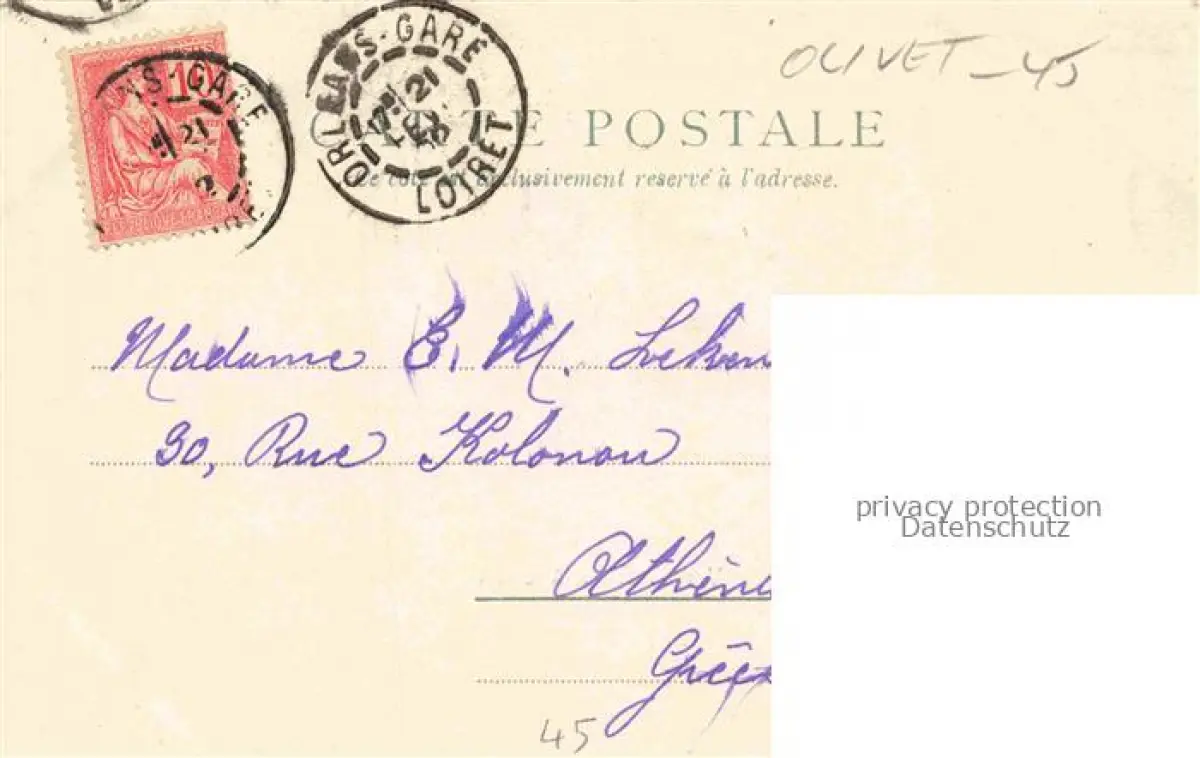 ORLEANS-GARE
21
LOIRET
NS-GARE
21
OLIVET - 45
CARTE POSTALE
Ce côté est exclusivement reservé à l'adresse.
Madame E. M. Leken
30, Rue Kolonou
Athène
Grèce
45
privacy protection
Datenschutz